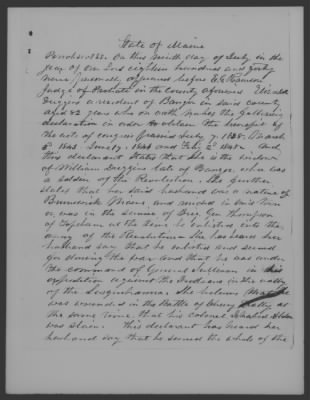 State of Maine
Penobscot ss. On this ninth day of July in the
year of our Lord eighteen hundred and forty
nine personally appeared before
Judge of Probate in the County aforesaid
Diggins a resident of Bangor in said county
aged 82 years who on oath makes the following
declaration in order to obtain the benefit of
the acts of congress passed July 7. 1838. March
3d 1843 June 17. 1844 and Feby 2d 1848. And
this declarant states that she is the widow
of William Diggins late of Bangor, who was
a soldier of the Revolution. She further
states that her said husband was a native of
Brunswick Maine, and resided in said town
or was in the service of Brig. Gen Thompson
of Topsham at the time he enlisted into the
army of the Revolution. She has heard her
husband say that he enlisted and served
for during the war and that he was under
the command of General Sullivan in his
expedition against the Indians in the valley
of the Susquehanna. She believes that he
was wounded in the Battle of Cherry Valley at
the same time that his colonel Ichabod Alden
was slain. This declarant has heard her
husband say that he served the whole of the